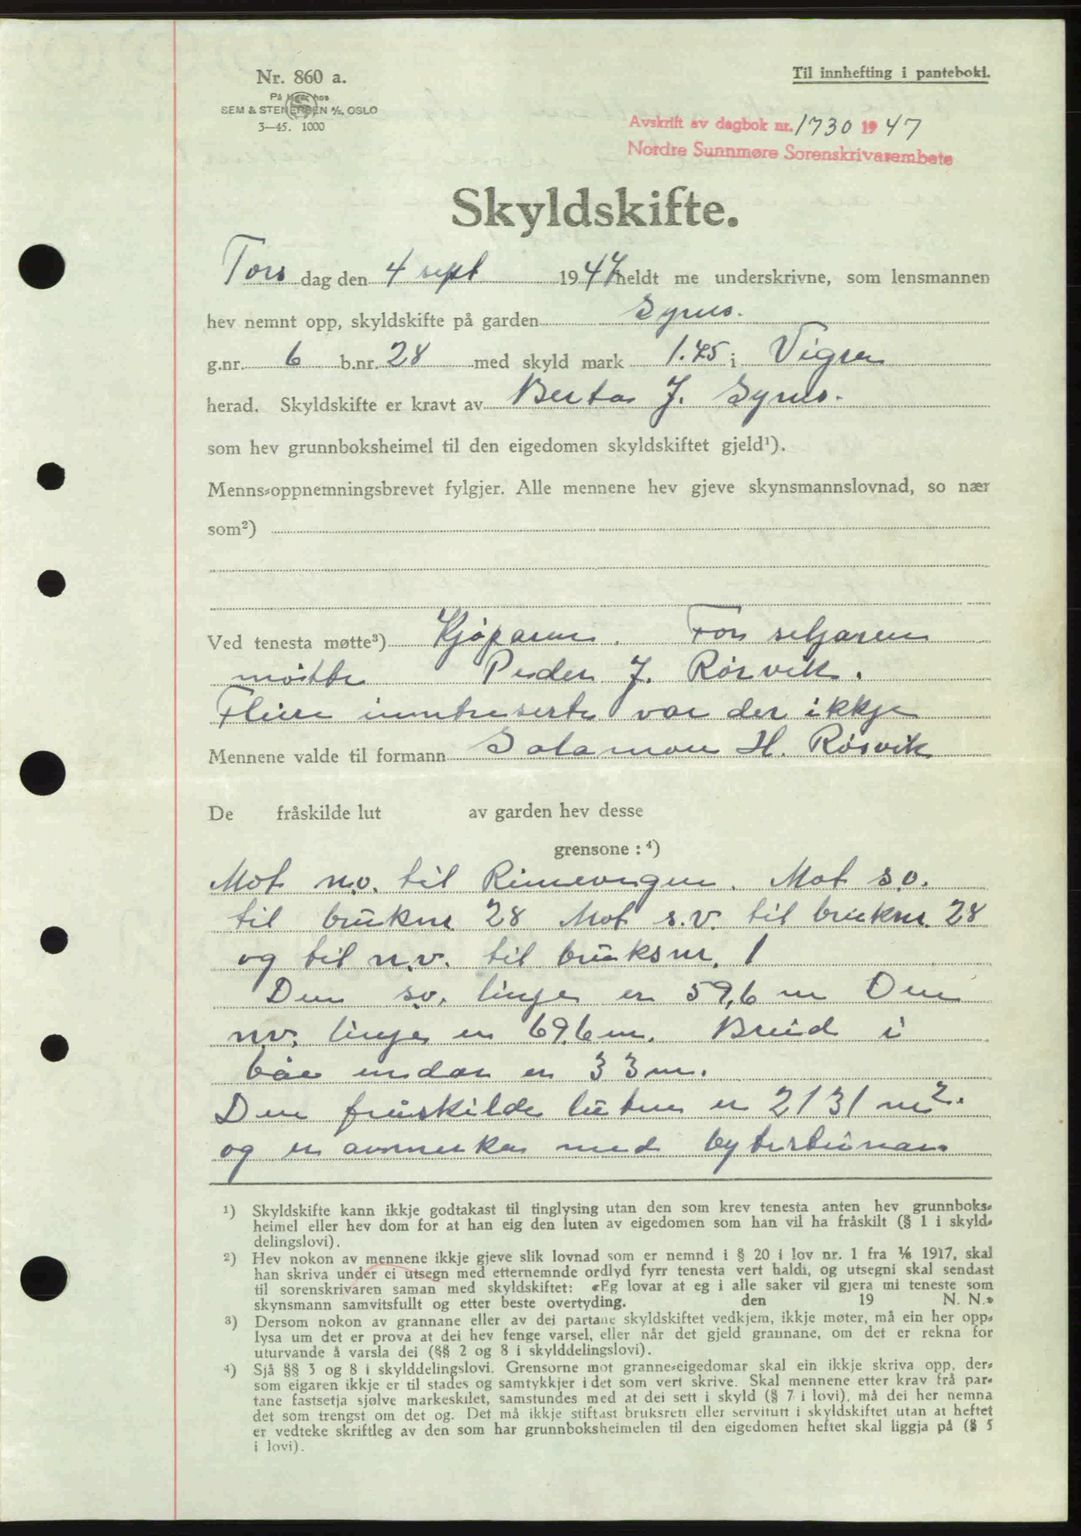 Nr. 860 a.
Til innhefting i pantebok.
På lager hos
SEM & STENERSEN A/S, OSLO
3—45. 1000
Avskrift av dagbok nr. 1730 1947
Nordre Sunnmøre Sorenskrivarembete
Skyldskifte.
Tors dag den 4 sept 1947 heldt me underskrivne, som lensmannen
hev nemnt opp, skyldskifte på garden Synes.
g.nr. 6 b.nr. 28 med skyld mark 1.45 i Vigra
herad. Skyldskifte er kravt av Berta J. Synes.
som hev grunnboksheimel til den eigedomen skyldskiftet gjeld¹).
Menns-oppnemningsbrevet fylgjer. Alle mennene hev gjeve skynsmannslovnad, so nær
som²)
Ved tenesta møtte³) Kjøparen. For seljaren
møtte Peder J. Rørvik.
Fleire inntreserte var der ikkje
Mennene valde til formann Salamon H. Røsvik
De fråskilde lut av garden hev desse
grensone : ⁴)
Mot n.o. til Rimevegen. Mot s.o.
til bruksnr 28 Mot s.v. til bruksnr. 28
og til n.v. til bruksnr. 1
Den s.o. linje er 59,6 m Den
n.v. linje er 69,6 m. Breid i
båe endar er 33 m.
Den fråskilde luten er 2131 m².
og er avmerka med byteteinar
¹) Skyldskifte kann ikkje godtakast til tinglysing utan den som krev tenesta anten hev grunnboks-
heimel eller hev dom for at han eig den luten av eigedomen som han vil ha fråskilt (§ 1 i skyld-
delingslovi).
²) Hev nokon av mennene ikkje gjeve slik lovnad som er nemnd i § 20 i lov nr. 1 fra ⅙ 1917, skal
han skriva under ei utsegn med etternemnde ordlyd fyrr tenesta vert haldi, og utsegni skal sendast
til sorenskrivaren saman med skyldskiftet: «Eg lovar at eg i alle saker vil gjera mi teneste som
skynsmann samvitsfullt og etter beste overtyding. den 19 N. N.»
³) Dersom nokon av grannane eller av dei partane skyldskiftet vedkjem, ikkje møter, må ein her opp-
lysa um det er prova at dei hev fenge varsel, eller når det gjeld grannane, om det er rekna for
uturvande å varsla dei (§§ 2 og 8 i skylddelingslovi).
⁴) Sjå §§ 3 og 8 i skylddelingslovi. Grensorne mot granne-eigedomar skal ein ikkje skriva opp, der-
som eigaren ikkje er til stades og samtykkjer i det som vert skrive. Skal mennene etter krav frå par-
tane fastsetja sjølve markeskilet, samstundes med at dei sett i skyld (§ 7 i lovi), må dei her nemna
det som trengst om det og. Det må ikkje stiftast bruksrett eller servitutt i skyldskiftet utan at heftet
er vedteke skriftleg av den som har grunnboksheimelen til den eigedomen heftet skal liggja på (§ 5
i lovi).